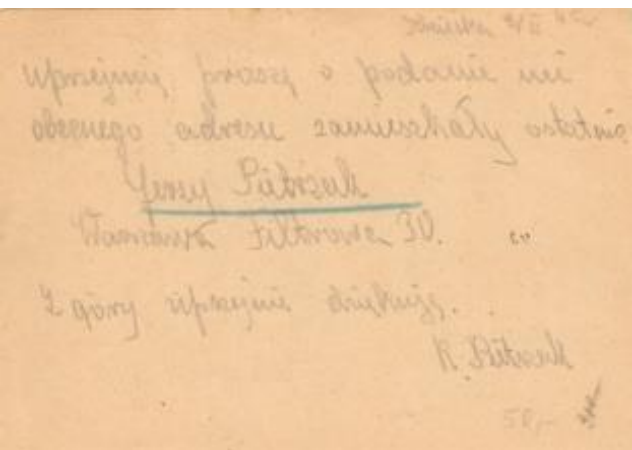 uprzejmie proszę o podanie mi
obecnego adresu zamieszkały ostatnio
Jerzy Pietrzak
Warszawa Filtrowa 30.
Z góry uprzejmie dziękuję.
K. Pietrzak
50,-